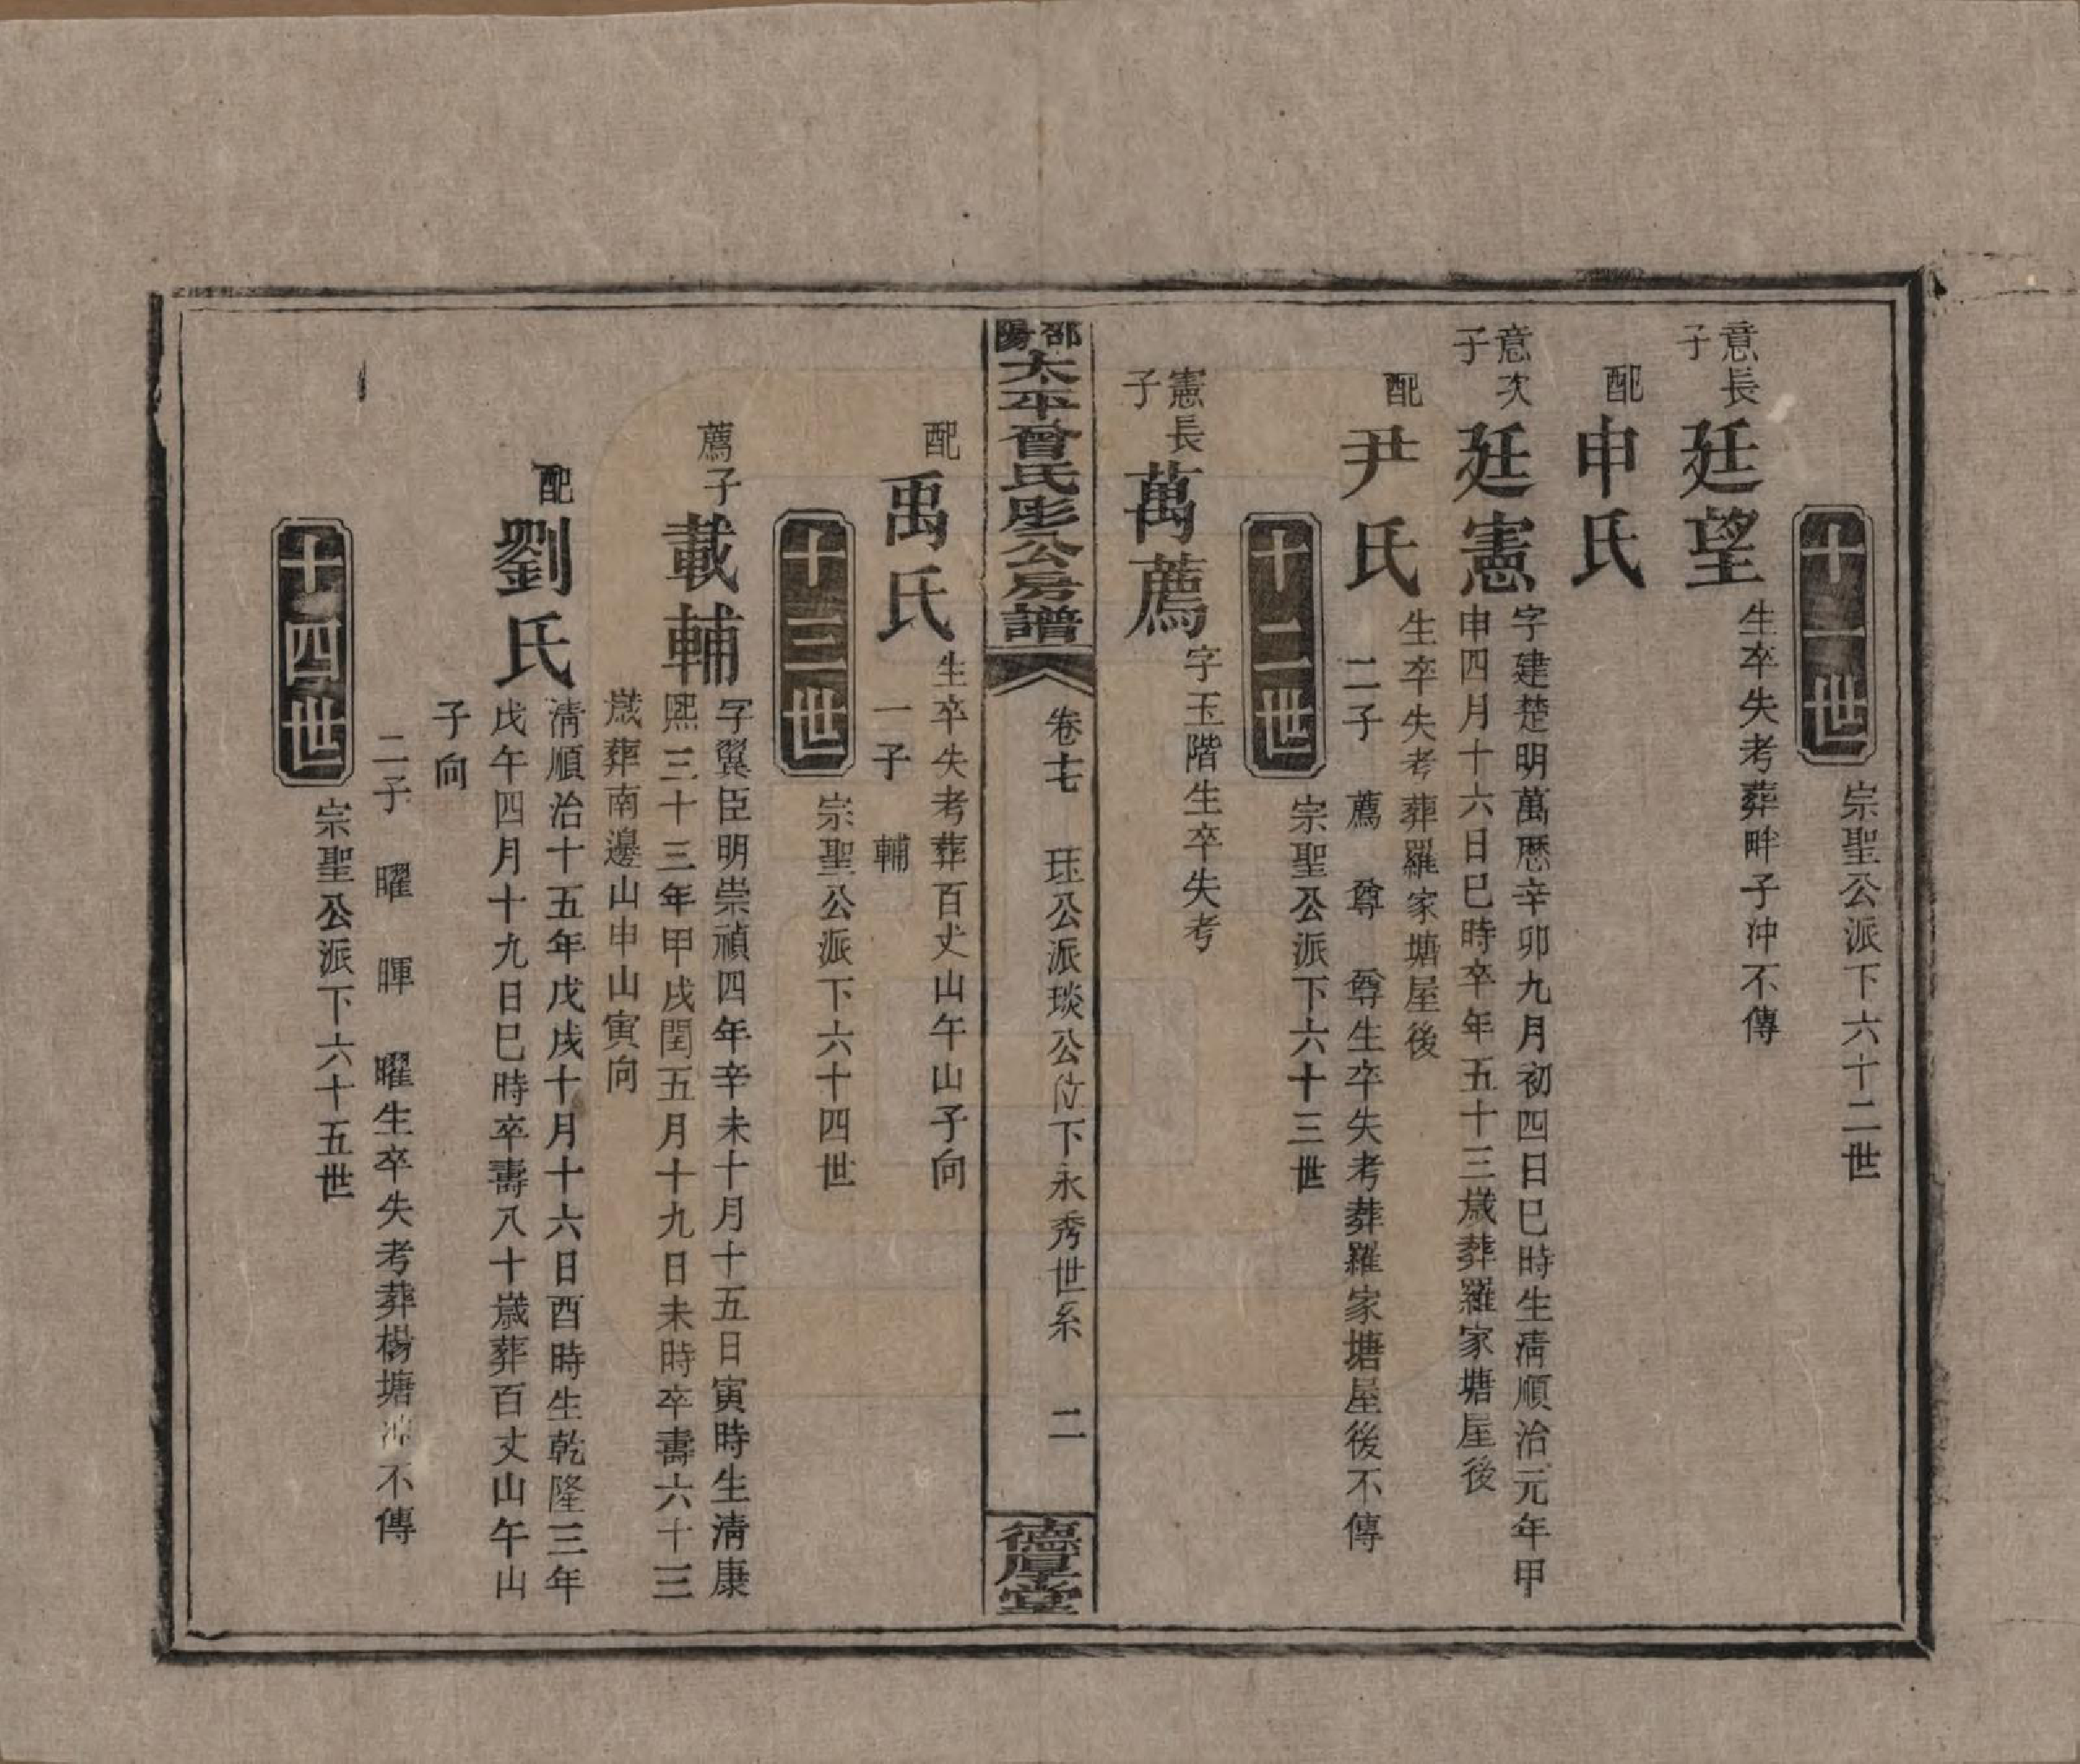 十一世
宗聖公派下六十二世
意長子
廷望
生卒失考葬畔子冲不傳
配
申氏
意次子
廷憲
字建楚明萬歷辛卯九月初四日巳時生淸順治元年甲
申四月十六日巳時卒年五十三歲葬羅家塘屋後
配
尹氏
生卒失考葬羅家塘屋後
二子 薦 尊 尊生卒失考葬羅家塘屋後不傳
十二世
宗聖公派下六十三世
憲長子
萬薦
字玉階生卒失考
邵陽太平曾氏彪公房譜
卷七 珏公派琰公位下永秀世系 二
德厚堂
配
禹氏
生卒失考葬百丈山午山子向
一子 輔
十三世
宗聖公派下六十四世
薦子
載輔
字翼臣明崇禎四年辛未十月十五日寅時生淸康
熙三十三年甲戌閏五月十九日未時卒壽六十三
歲葬南邊山申山寅向
配
劉氏
淸順治十五年戊戌十月十六日酉時生乾隆三年
戊午四月十九日巳時卒壽八十歲葬百丈山午山
子向
二子 曜 暉 曜生卒失考葬楊塘不傳
十四世
宗聖公派下六十五世